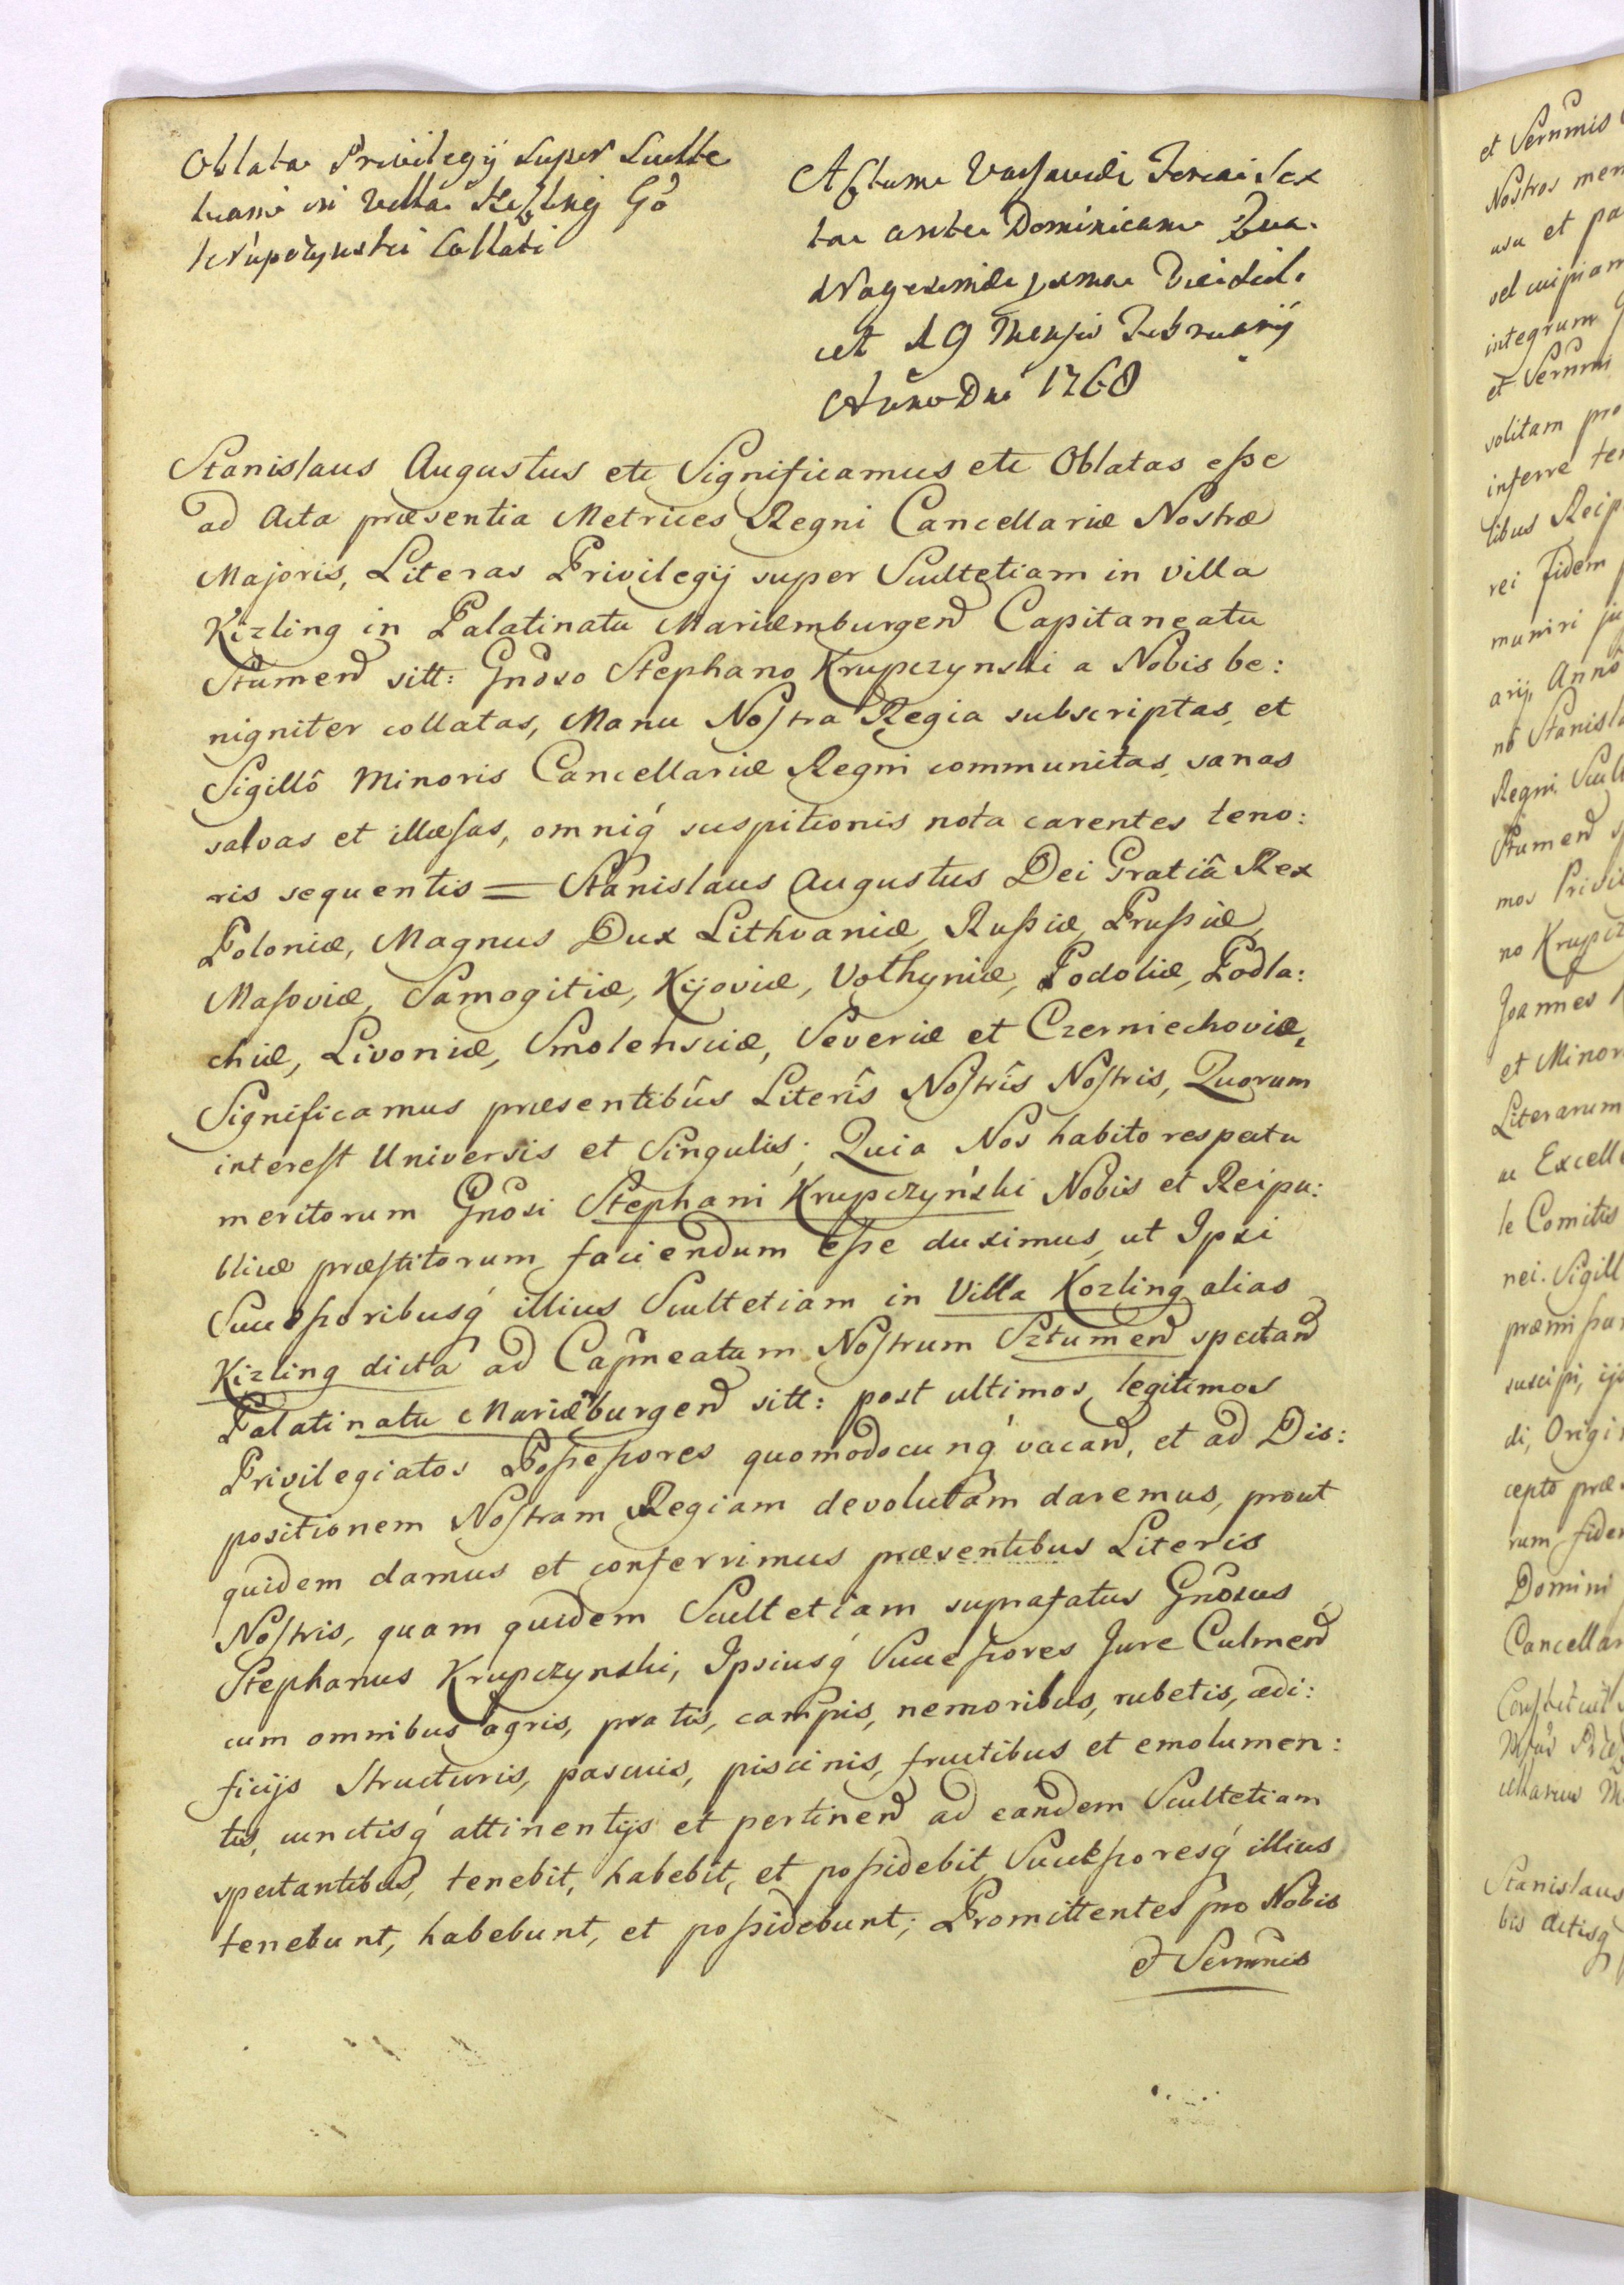 Oblata Privilegij super Sculte
tiam in Villa Kizling Gō
Krupczynski Collati
Actum Varsaviæ Feria Sex
ta ante Dominicam Qua
dragesimæ Primæ Die scil.
cet 19 Mensis Februarij
Anno Dnī 1768
Stanislaus Augustus etc Significamus etc Oblatas eſse
ad Acta præsentia Metrices Regni Cancellariæ Nostræ
Majoris, Literas Privilegij super Scultetiam in Villa
Kizling in Palatinatu Mariæmburgen̄ Capitaneatu
Stumen̄ sitt: Gnōso Stephano Krupczynski a Nobis be:
nigniter collatas, Manu Noſtra Regia subscriptas, et
Sigillô Minoris Cancellariæ Regni communitas, sanas
salvas et illæſas, omniq́ suspitionis nota carentes teno:
ris sequentis = Stanislaus Augustus Dei Gratiâ Rex
Poloniæ, Magnus Dux Lithvaniæ, Ruſsiæ, Pruſsiæ,
Maſoviæ, Samogitiæ, Kijoviæ, Volhyniæ, Podoliæ, Podla:
chiæ, Livoniæ, Smolensciæ, Severiæ et Czerniechoviæ,
Significamus præsentibûs Literîs Noſtrîs Noſtris, Quorum
intereſt Universis et Singulis; Quia Nos habito respectu
meritorum Gnōsi Stephani Krupczyński Nobis et Reipu:
blicæ præſtitorum, faciendum eſse duximus, ut Ipsi
Succeſsoribusq́ illius Scultetiam in Villa Kozling alias
Kizling dicta ad Capneatum Noſtrum Sztumen̄ spectan̄
Palatinatu Mariæburgen̄ sitt: post ultimos, legitimos
Privilegiatos Poſseſsores quomodocunq́ vacan̄, et ad Dis:
positionem Noſtram Regiam devolutam daremus, prout
quidem damus et conferrimus præsentibus Literis
Noſtris, quam quidem Scultetiam suprafatus Gnōsus
Stephanus Krupczynski, Ipsiusq́ Succeſsores Jure Culmen̄
cum omnibus agris, pratis, campis, nemoribus, rubetis, ædi:
ficijs Structuris, pascuis, piscinis, fructibus et emolumen:
tis, cunctisq́ attinentijs et pertinen̄ ad eandem Scultetiam
spectantibus, tenebit, habebit, et poſsidebit, Succeſsoresq́ illius
tenebunt, habebunt, et poſsidebunt; Promittentes pro Nobis
et Sernmis
et Sernmis
Nostros
usu et
vel cuipiam
integrum
et Sernmi
solitam pro
inferre
tibus Reip
rei fidem
muniri
arij, Anno
nō
Regni
Stumen̄
mos
no
Joannes
et Minor
Literarum
ac Excell
le Comitis
nei. Sigill
præmiſsa
suscipi,
di, Origi
cepto præ
rum fide
Domini
Cancellar
Stanislaus
bis Actisq́